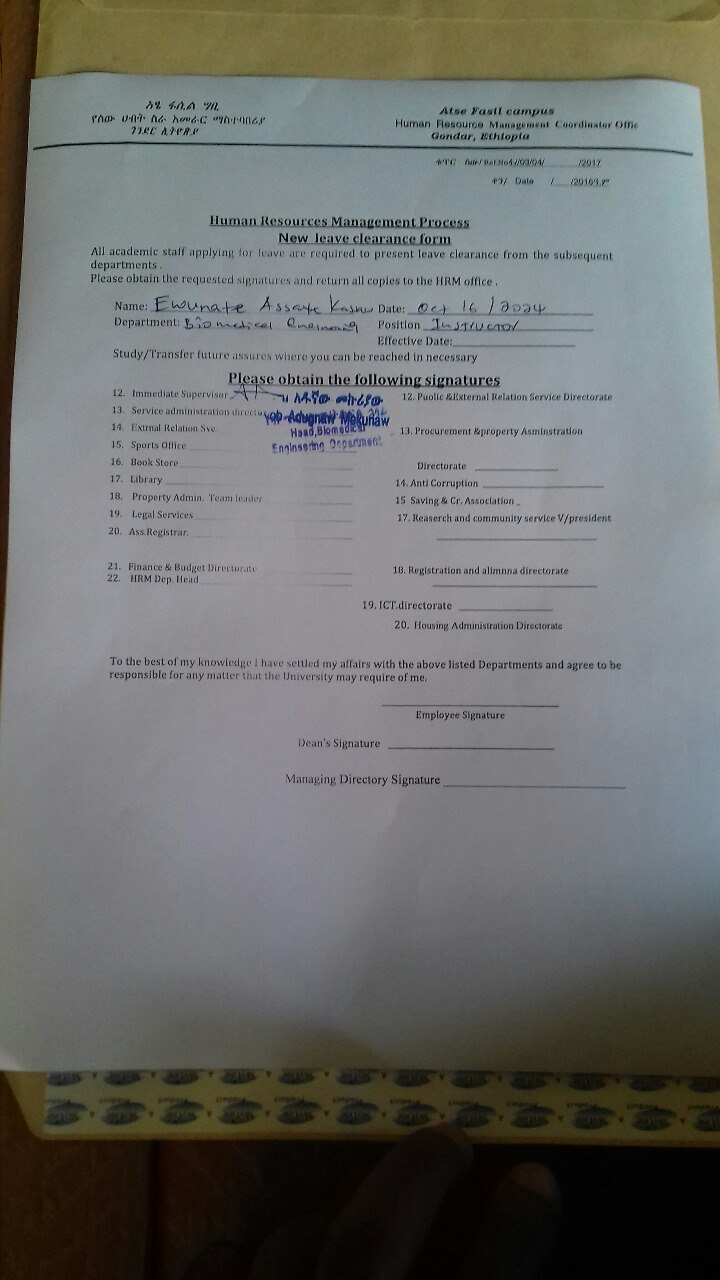 አፄ ፋሲል ግቢ
የሰው ሀብት ስራ አመራር ማስተባበሪያ
ጎንደር ኢትዮጵያ
Atse Fasil campus
Human Resource Management Coordinator Offic
Gondar, Ethiopia
/2017
ቀን/ Date / /2016ዓ.ም
Human Resources Management Process
New leave clearance form
All academic staff applying for leave are required to present leave clearance from the subsequent
departments .
Please obtain the requested signatures and return all copies to the HRM office .
Name: Ewunate Assaye Kassaw Date: Oct 16 / 2024
Department: Biomedical Engineering Position Instructor
Effective Date:
Study/Transfer future assures where you can be reached in necessary
Please obtain the following signatures
12. Immediate Supervisor
13. Service administration
14. Extrnal Relation Sve
15. Sports Office
16. Book Store
17. Library
18. Property Admin. Team leader
19. Legal Services
20. Ass.Registrar.
21. Finance & Budget Directorate
22. HRM Dep. Head
Adugnaw Mekuriaw
Head, Biomedical
Engineering Department
12. Puolic &External Relation Service Directorate
13. Procurement &property Asminstration
Directorate
14. Anti Corruption
15 Saving & Cr. Association
17. Reaserch and community service V/president
18. Registration and alimnna directorate
19. ICT.directorate
20. Housing Administration Directorate
To the best of my knowledge I have settled my affairs with the above listed Departments and agree to be
responsible for any matter that the University may require of me.
Employee Signature
Dean's Signature
Managing Directory Signature